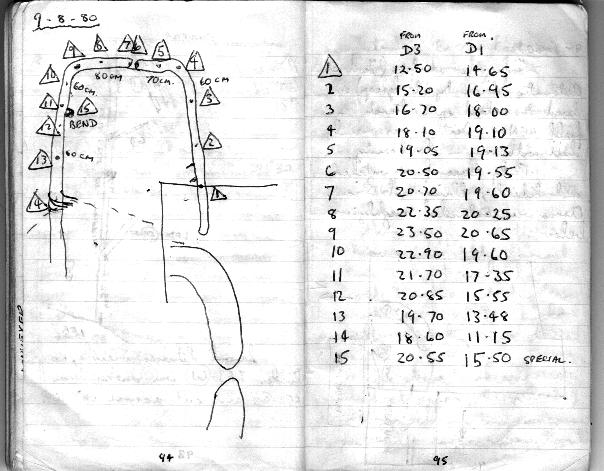 9-8-80
9 8 7 6 5 4
80CM 70CM. 60CM
10 60CM.
11 15 3
BEND
12 2
13 80CM
14 1
44
FROM FROM.
D3 D1
1 12.50 14.65
2 15.20 16.95
3 16.70 18.00
4 18.10 19.10
5 19.05 19.13
6 20.50 19.55
7 20.70 19.60
8 22.35 20.25
9 23.50 20.65
10 22.90 19.60
11 21.70 17.35
12 20.85 15.55
13 19.70 13.48
14 18.60 11.15
15 20.55 15.50 SPECIAL.
95